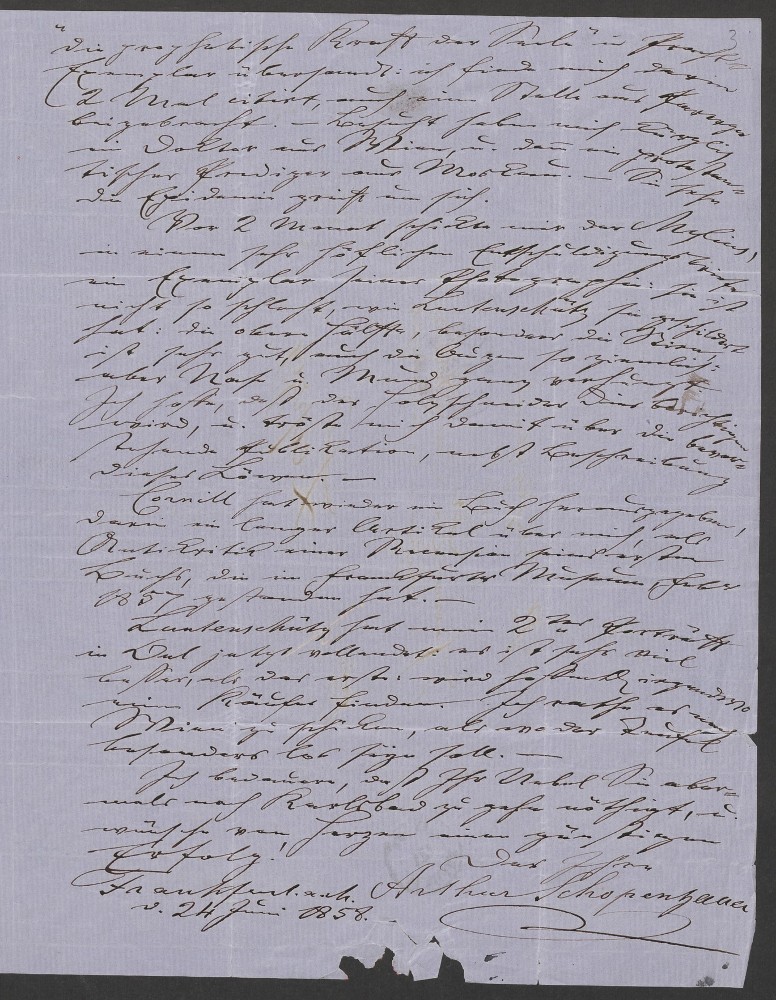 3
"die prophetische Kraft der Seele" in Pracht-
Exemplar übersandt: ich finde mich darin
2 Mal citirt, auch eine Stelle aus Parerga
beigebracht. — Besucht haben mich kürzlich
ein Doktor aus Wien, u. dann ein protestan-
tischer Prediger aus Moskau. — Sie sehn
die Epidemie greift um sich.
Vor 2 Monat schickte mir der Mylius,
in einem sehr höflichen Entschuldigungsbriefe
ein Exemplar seiner Photographie: sie ist
nicht so schlecht, wie Lunteschütz sie geschildert
hat: die obere Hälfte, besonders die Stirn,
ist sehr gut, auch die Augen so ziemlich:
aber Nase u. Mund ganz verhunzt.
Ich hoffe, daß der Holzschneider dies berichtigen
wird, u. tröste mich damit über die bevor-
stehende Publikation, nebst Beschreibung
dieses Löwen. —
Cornill hat wieder ein Buch herausgegeben,
darin ein langer Artikel über mich, als
Antikritik einer Recension seines ersten
Buchs, die im Frankfurter Museum, Febr
1857 gestanden hat. —
Lunteschütz hat mein 2tes Porträtt
in Oel jetzt vollendet: es ist sehr viel
besser, als das erste: wird hoffentl. irgendwo
einen Käufer finden. Ich rathe es nach
Wien zu schicken, als wo der Teufel
besonders los seyn soll. —
Ich bedauere, daß Ihr Uebel Sie aber-
mals nach Karlsbad zu gehn nöthigt, u.
wünsche von Herzen einen günstigen
Erfolg!
Der Ihre
Frankfurt a. M. Arthur Schopenhauer
d. 24 Juni 1858.